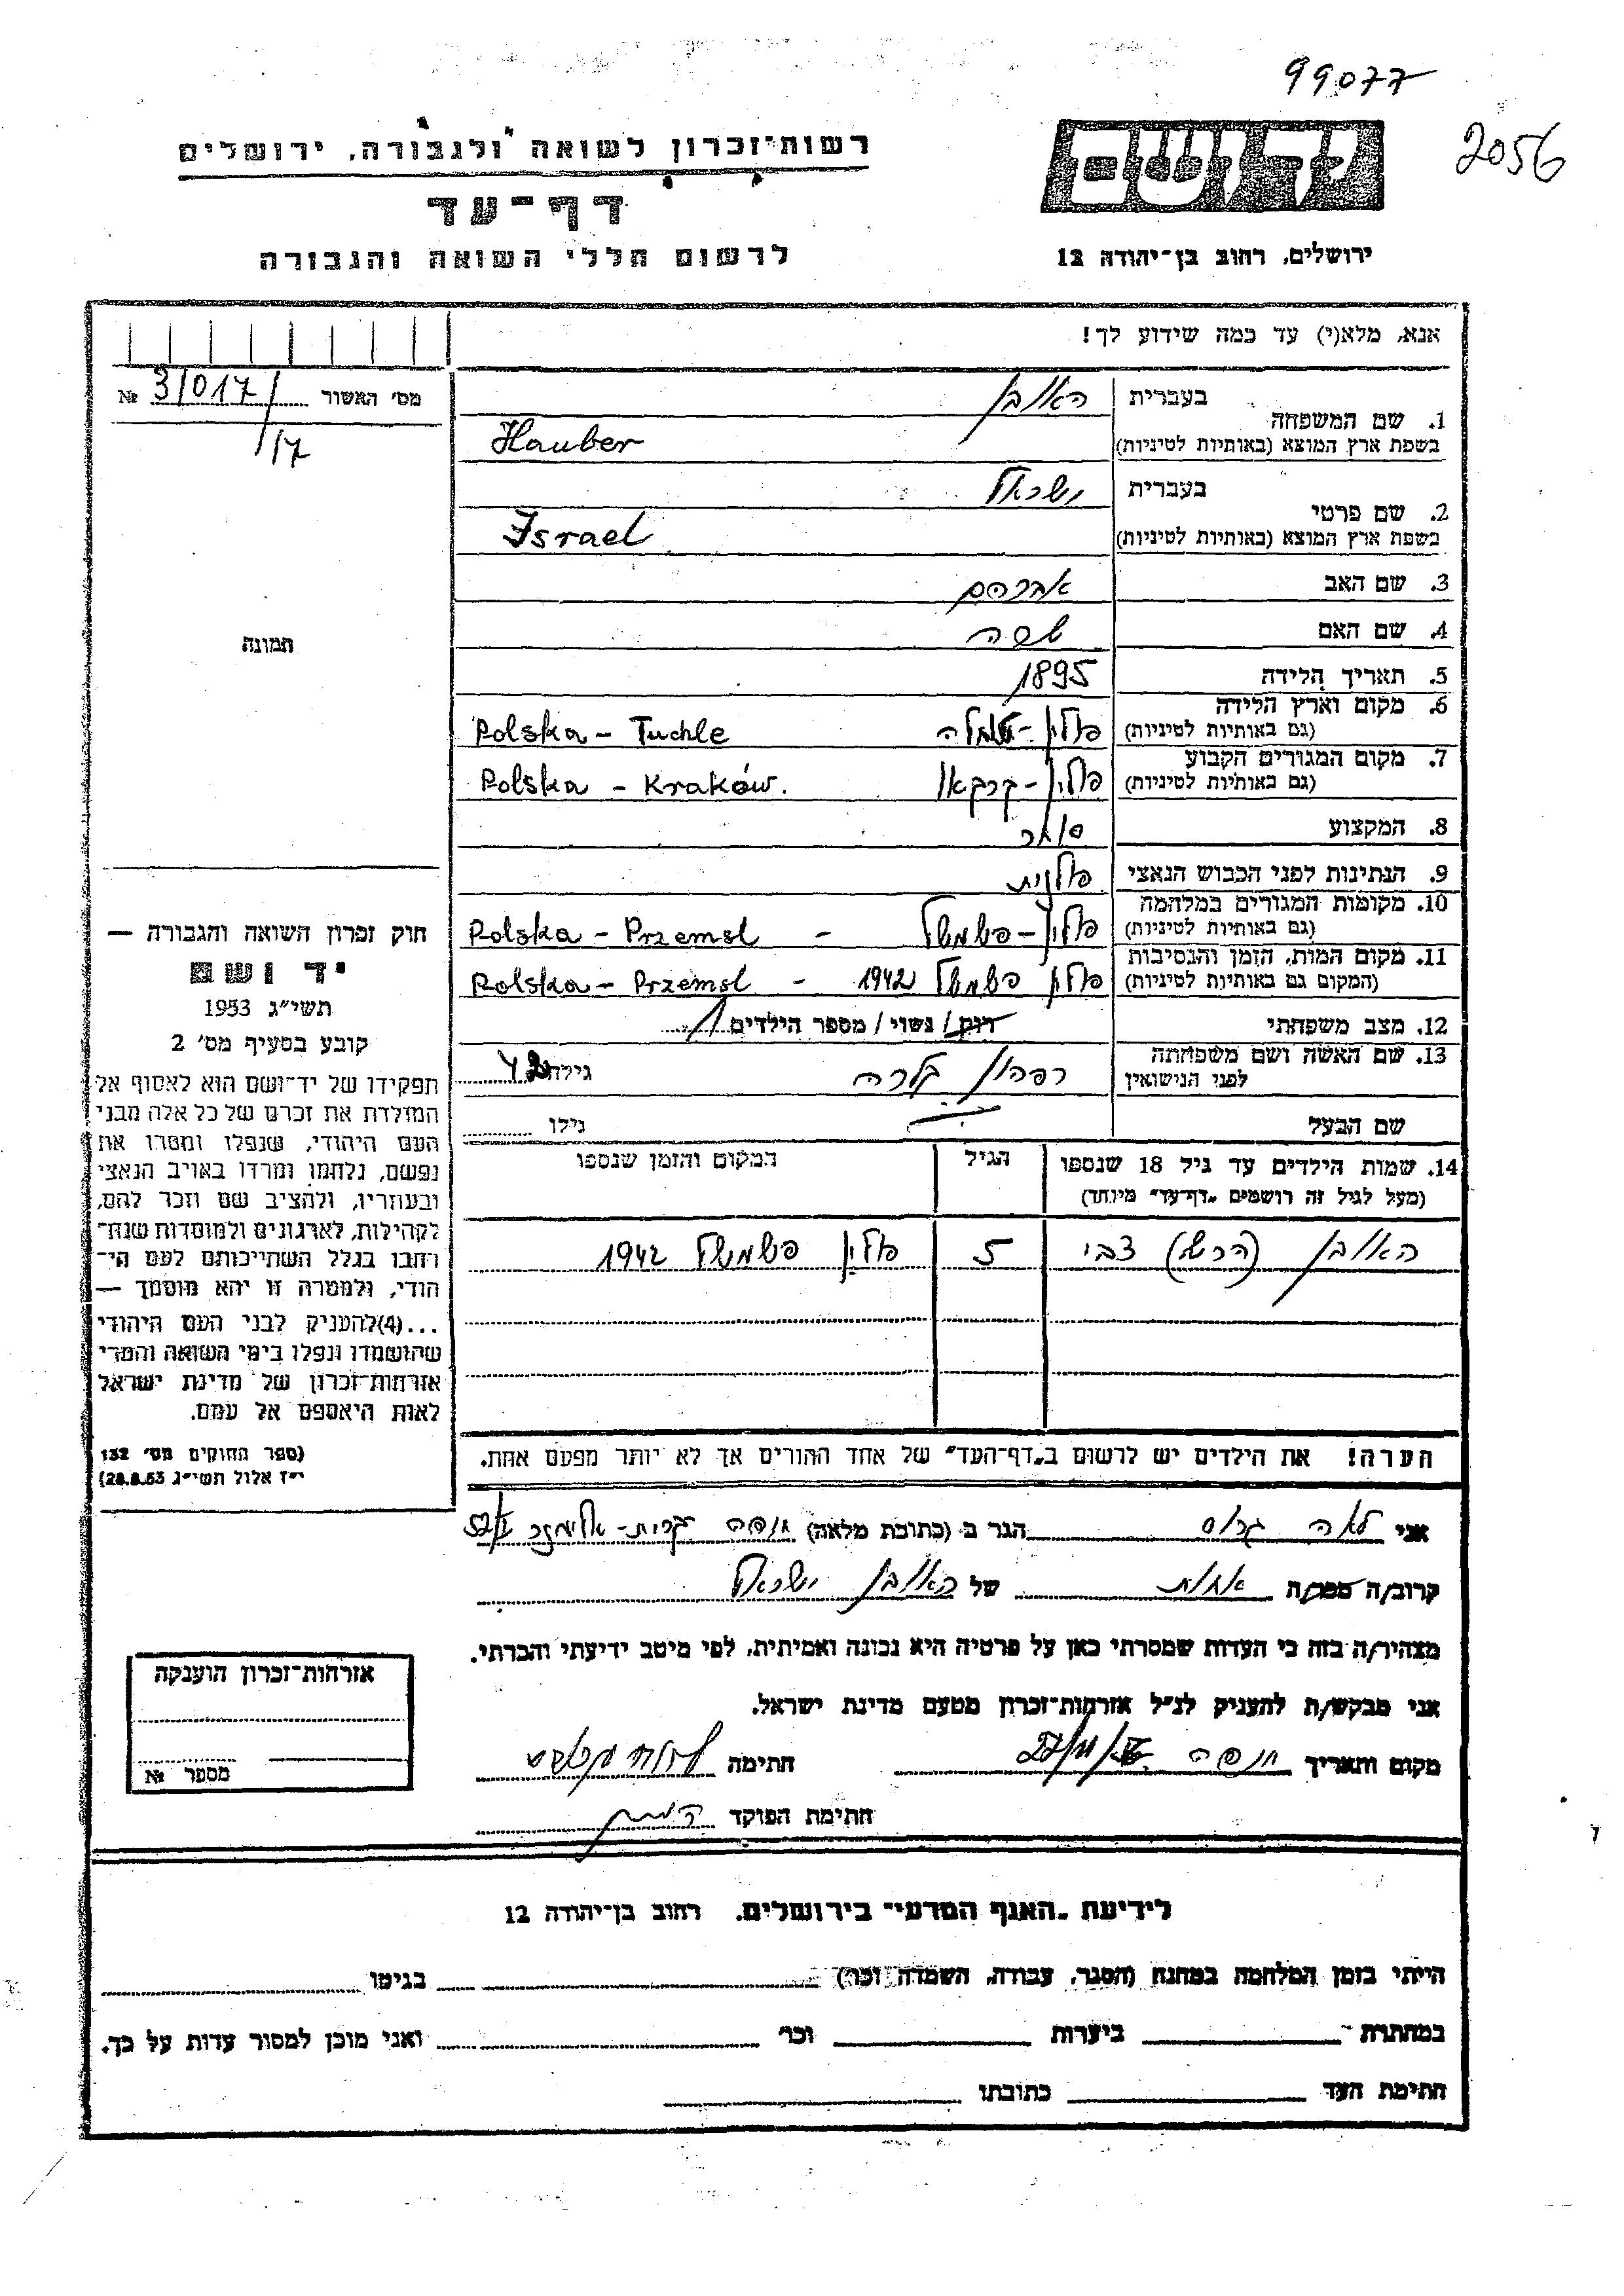 99077
2056
רשות־זכרון לשואה ולגבורה, ירושלים
יד ושם
דף־עד
לרשום חללי השואה והגבורה
ירושלים, רחוב בן־יהודה 12
אנא, מלא(י) עד כמה שידוע לך!
מס׳ האשור № 3/017/
17
1. שם המשפחה
בעברית
בשפת ארץ המוצא (באותיות לטיניות) Hauber
2. שם פרטי
בעברית ישראל
בשפת ארץ המוצא (באותיות לטיניות) Israel
3. שם האב אברהם
4. שם האם
5. תאריך הלידה 1895
6. מקום וארץ הלידה
(גם באותיות לטיניות) פולין - Polska - Tuchle
7. מקום המגורים הקבוע
(גם באותיות לטיניות) פולין - קרקאו Polska - Kraków.
8. המקצוע סוחר
9. הנתינות לפני הכבוש הנאצי פולנית
10. מקומות המגורים במלחמה
(גם באותיות לטיניות) פולין - פשמישל - Polska - Przemsl
11. מקום המות, הזמן והנסיבות
(המקום גם באותיות לטיניות) פולין פשמישל 1942 - Polska - Przemsl
12. מצב משפחתי רוק / נשוי / מספר הילדים 1
13. שם האשה ושם משפחתה
לפני הנישואין קלרה גילה 42
שם הבעל גילו
14. שמות הילדים עד גיל 18 שנספו
(מעל לגיל זה רושמים „דף־עד״ מיוחד)
הגיל
המקום והזמן שנספו
צבי 5 פולין פשמישל 1942
הערה! את הילדים יש לרשום ב„דף־העד״ של אחד ההורים אך לא יותר מפעם אחת.
תמונה
חוק זכרון השואה והגבורה —
יד ושם
תשי״ג 1953
קובע בסעיף מס׳ 2
תפקידו של יד־ושם הוא לאסוף אל
המולדת את זכרם של כל אלה מבני
העם היהודי, שנפלו ומסרו את
נפשם, נלחמו ומרדו באויב הנאצי
ובעוזריו, ולהציב שם וזכר להם,
לקהילות, לארגונים ולמוסדות שנח־
רבו בגלל השתייכותם לעם הי־
הודי, ולמטרה זו יהא מוסמך —
...(4)להעניק לבני העם היהודי
שהושמדו ונפלו בימי השואה והמרי
אזרחות־זכרון של מדינת ישראל
לאות היאספם אל עמם.
(ספר החוקים מס׳ 132
י״ז אלול תשי״ג 28.8.53)
אני לאה גרוס הגר ב (כתובת מלאה) חיפה קרית-אליעזר
קרוב/ה מכר/ה אחות של ישראל
מצהיר/ה בזה כי העדות שמסרתי כאן על פרטיה היא נכונה ואמיתית, לפי מיטב ידיעתי והכרתי.
אני מבקש/ת להעניק לנ״ל אזרחות־זכרון מטעם מדינת ישראל.
מקום ותאריך חיפה חתימה
חתימת הפוקד
אזרחות־זכרון הוענקה
מספר №
לידיעת „האגף המדעי״ בירושלים, רחוב בן־יהודה 12
הייתי בזמן המלחמה במחנה (הסגר, עבודה, השמדה וכו׳) בגיטו
במחתרת ביערות וכו׳ ואני מוכן למסור עדות על כך.
חתימת העד כתובתו